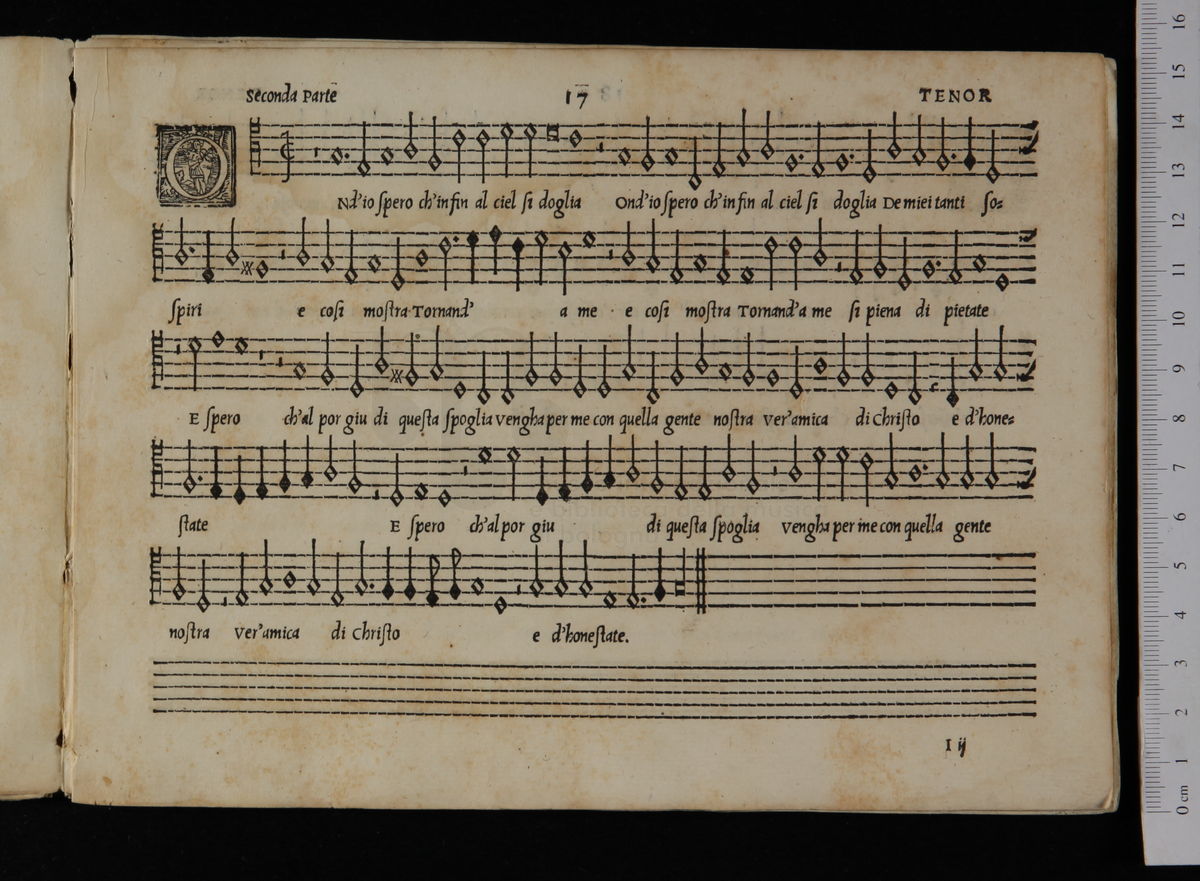 Seconda Parte 17 TENOR
ONd'io spero ch'infin al ciel si doglia Ond'io spero ch'infin al ciel si doglia De miei tanti so=
spiri e cosi mostra Tornand' a me e cosi mostra Tornand'a me si piena di pietate
E spero ch'al por giu di questa spoglia vengha per me con quella gente nostra ver'amica di Christo e d'hone=
state E spero ch'al por giu di questa spoglia vengha per me con quella gente
nostra ver'amica di Christo e d'honestate.
I ij
16
15
14
13
12
11
10
9
8
7
6
5
4
3
2
1
0 cm